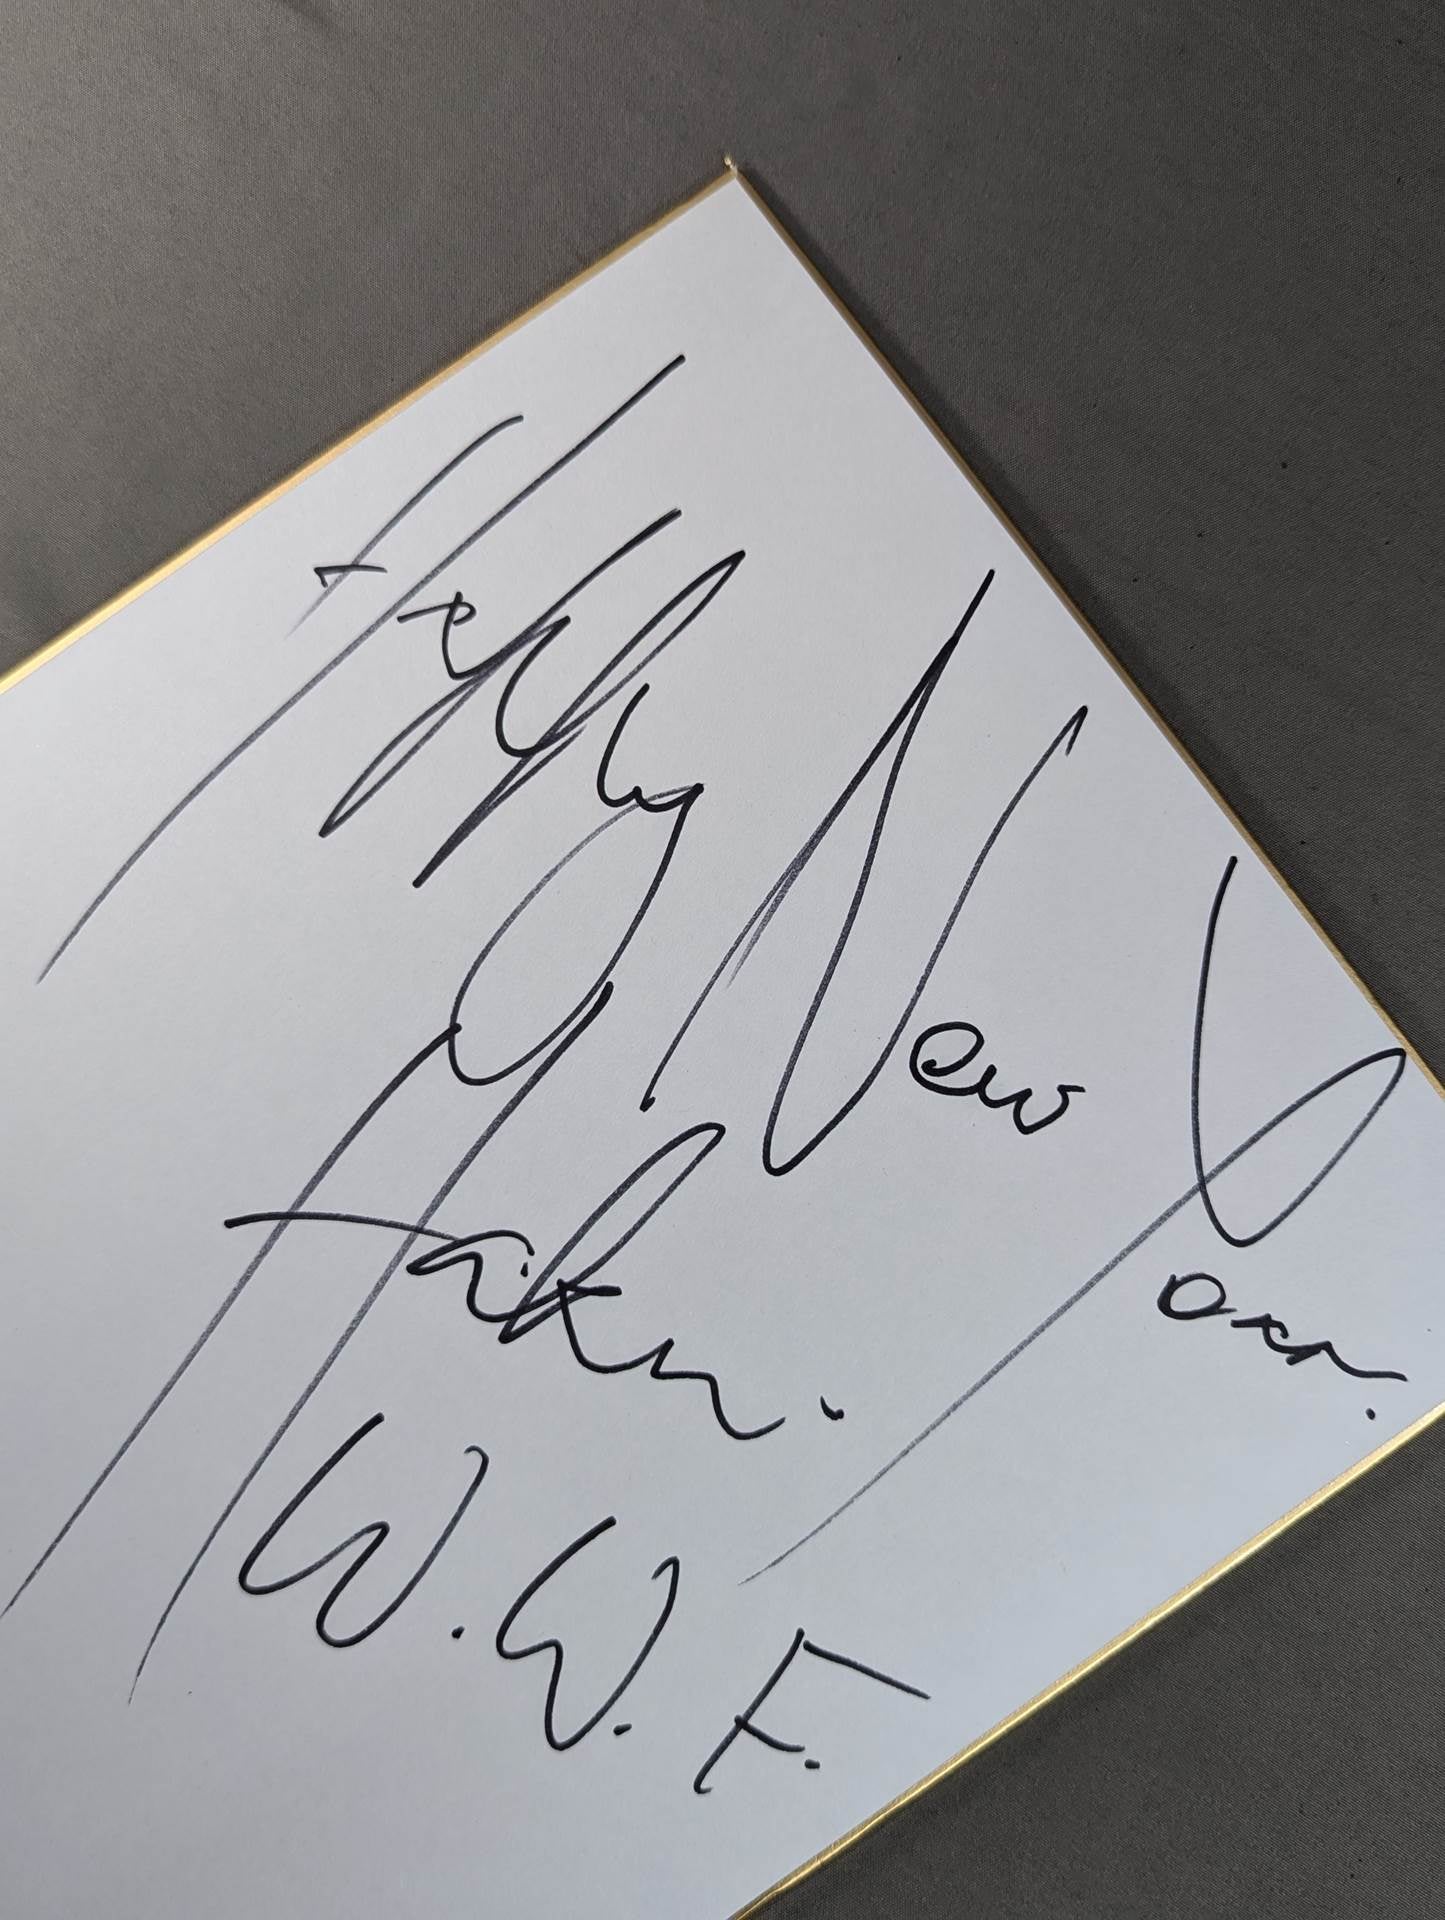 Happy New Year.
Hakushi.
W.W.F.